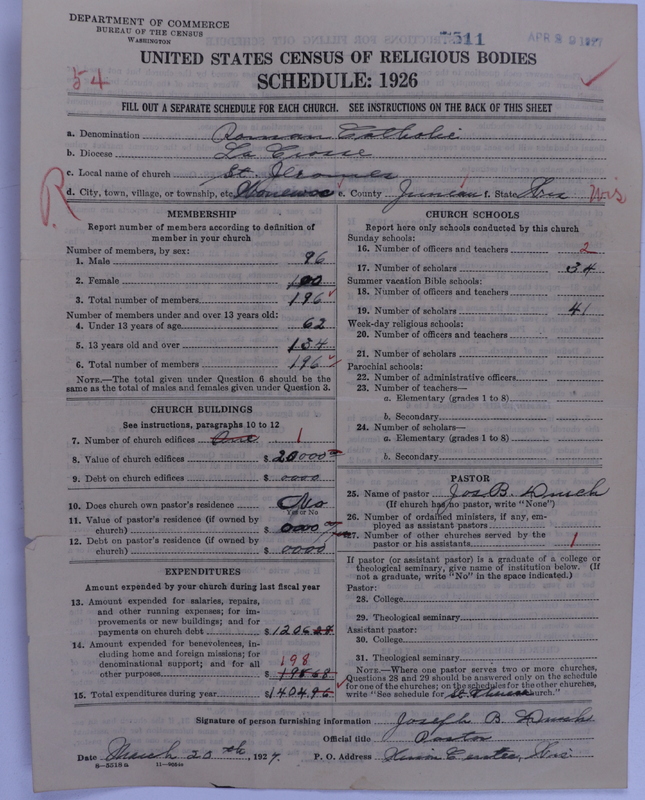 DEPARTMENT OF COMMERCE
BUREAU OF THE CENSUS
WASHINGTON
7511
APR 29 1927
UNITED STATES CENSUS OF RELIGIOUS BODIES
54
SCHEDULE: 1926
FILL OUT A SEPARATE SCHEDULE FOR EACH CHURCH. SEE INSTRUCTIONS ON THE BACK OF THIS SHEET
a. Denomination Roman Catholic
b. Diocese La Crosse
c. Local name of church St. Jeromes
d. City, town, village, or township, etc. Wonewoc e. County Juneau f. State Wis Wis
R
MEMBERSHIP
Report number of members according to definition of
member in your church
Number of members, by sex:
1. Male 96
2. Female 100
3. Total number of members 196
Number of members under and over 13 years old:
4. Under 13 years of age 62
5. 13 years old and over 134
6. Total number of members 196
NOTE.—The total given under Question 6 should be
same as the total of males and females given under Question 3.
CHURCH BUILDINGS
See instructions, paragraphs 10 to 12
7. Number of church edifices One 1
8. Value of church edifices $ 20000
9. Debt on church edifices $ 0000
10. Does church own pastor's residence No
Yes or No
11. Value of pastor's residence (if owned by
church) $ 0000
12. Debt on pastor's residence (if owned by
church) $ 0000
EXPENDITURES
Amount expended by your church during last fiscal year
13. Amount expended for salaries, repairs,
and other running expenses; for im-
provements or new buildings; and for
payments on church debt $ 1206
14. Amount expended for benevolences, in-
cluding home and foreign missions; for
denominational support; and for all 198
other purposes $ 198 68
15. Total expenditures during year $ 1404.96
CHURCH SCHOOLS
Report here only schools conducted by this church
Sunday schools:
16. Number of officers and teachers 2
17. Number of scholars 34
Summer vacation Bible schools:
18. Number of officers and teachers
19. Number of scholars 41
Week-day religious schools:
20. Number of officers and teachers
21. Number of scholars
Parochial schools:
22. Number of administrative officers
23. Number of teachers—
a. Elementary (grades 1 to 8)
b. Secondary
24. Number of scholars—
a. Elementary (grades 1 to 8)
b. Secondary
PASTOR
25. Name of pastor Jos. B.
(If church has no pastor, write "None")
26. Number of ordained ministers, if any, em-
ployed as assistant pastors
27. Number of other churches served by the
pastor or his assistants 1
If pastor (or assistant pastor) is a graduate of a college or
theological seminary, give name of institution below. (If
not a graduate, write "No" in the space indicated.)
Pastor:
28. College
29. Theological seminary
Assistant pastor:
30. College
31. Theological seminary
NOTE.—Where one pastor serves two or more churches,
Questions 28 and 29 should be answered only on the schedule
for one of the churches; on the schedules for the other churches,
write "See schedule for St. church."
Signature of person furnishing information Joseph B.
Official title Pastor
Date March 20th, 1927. P. O. Address Union Center, Wis.
8-5518a 11-9083a